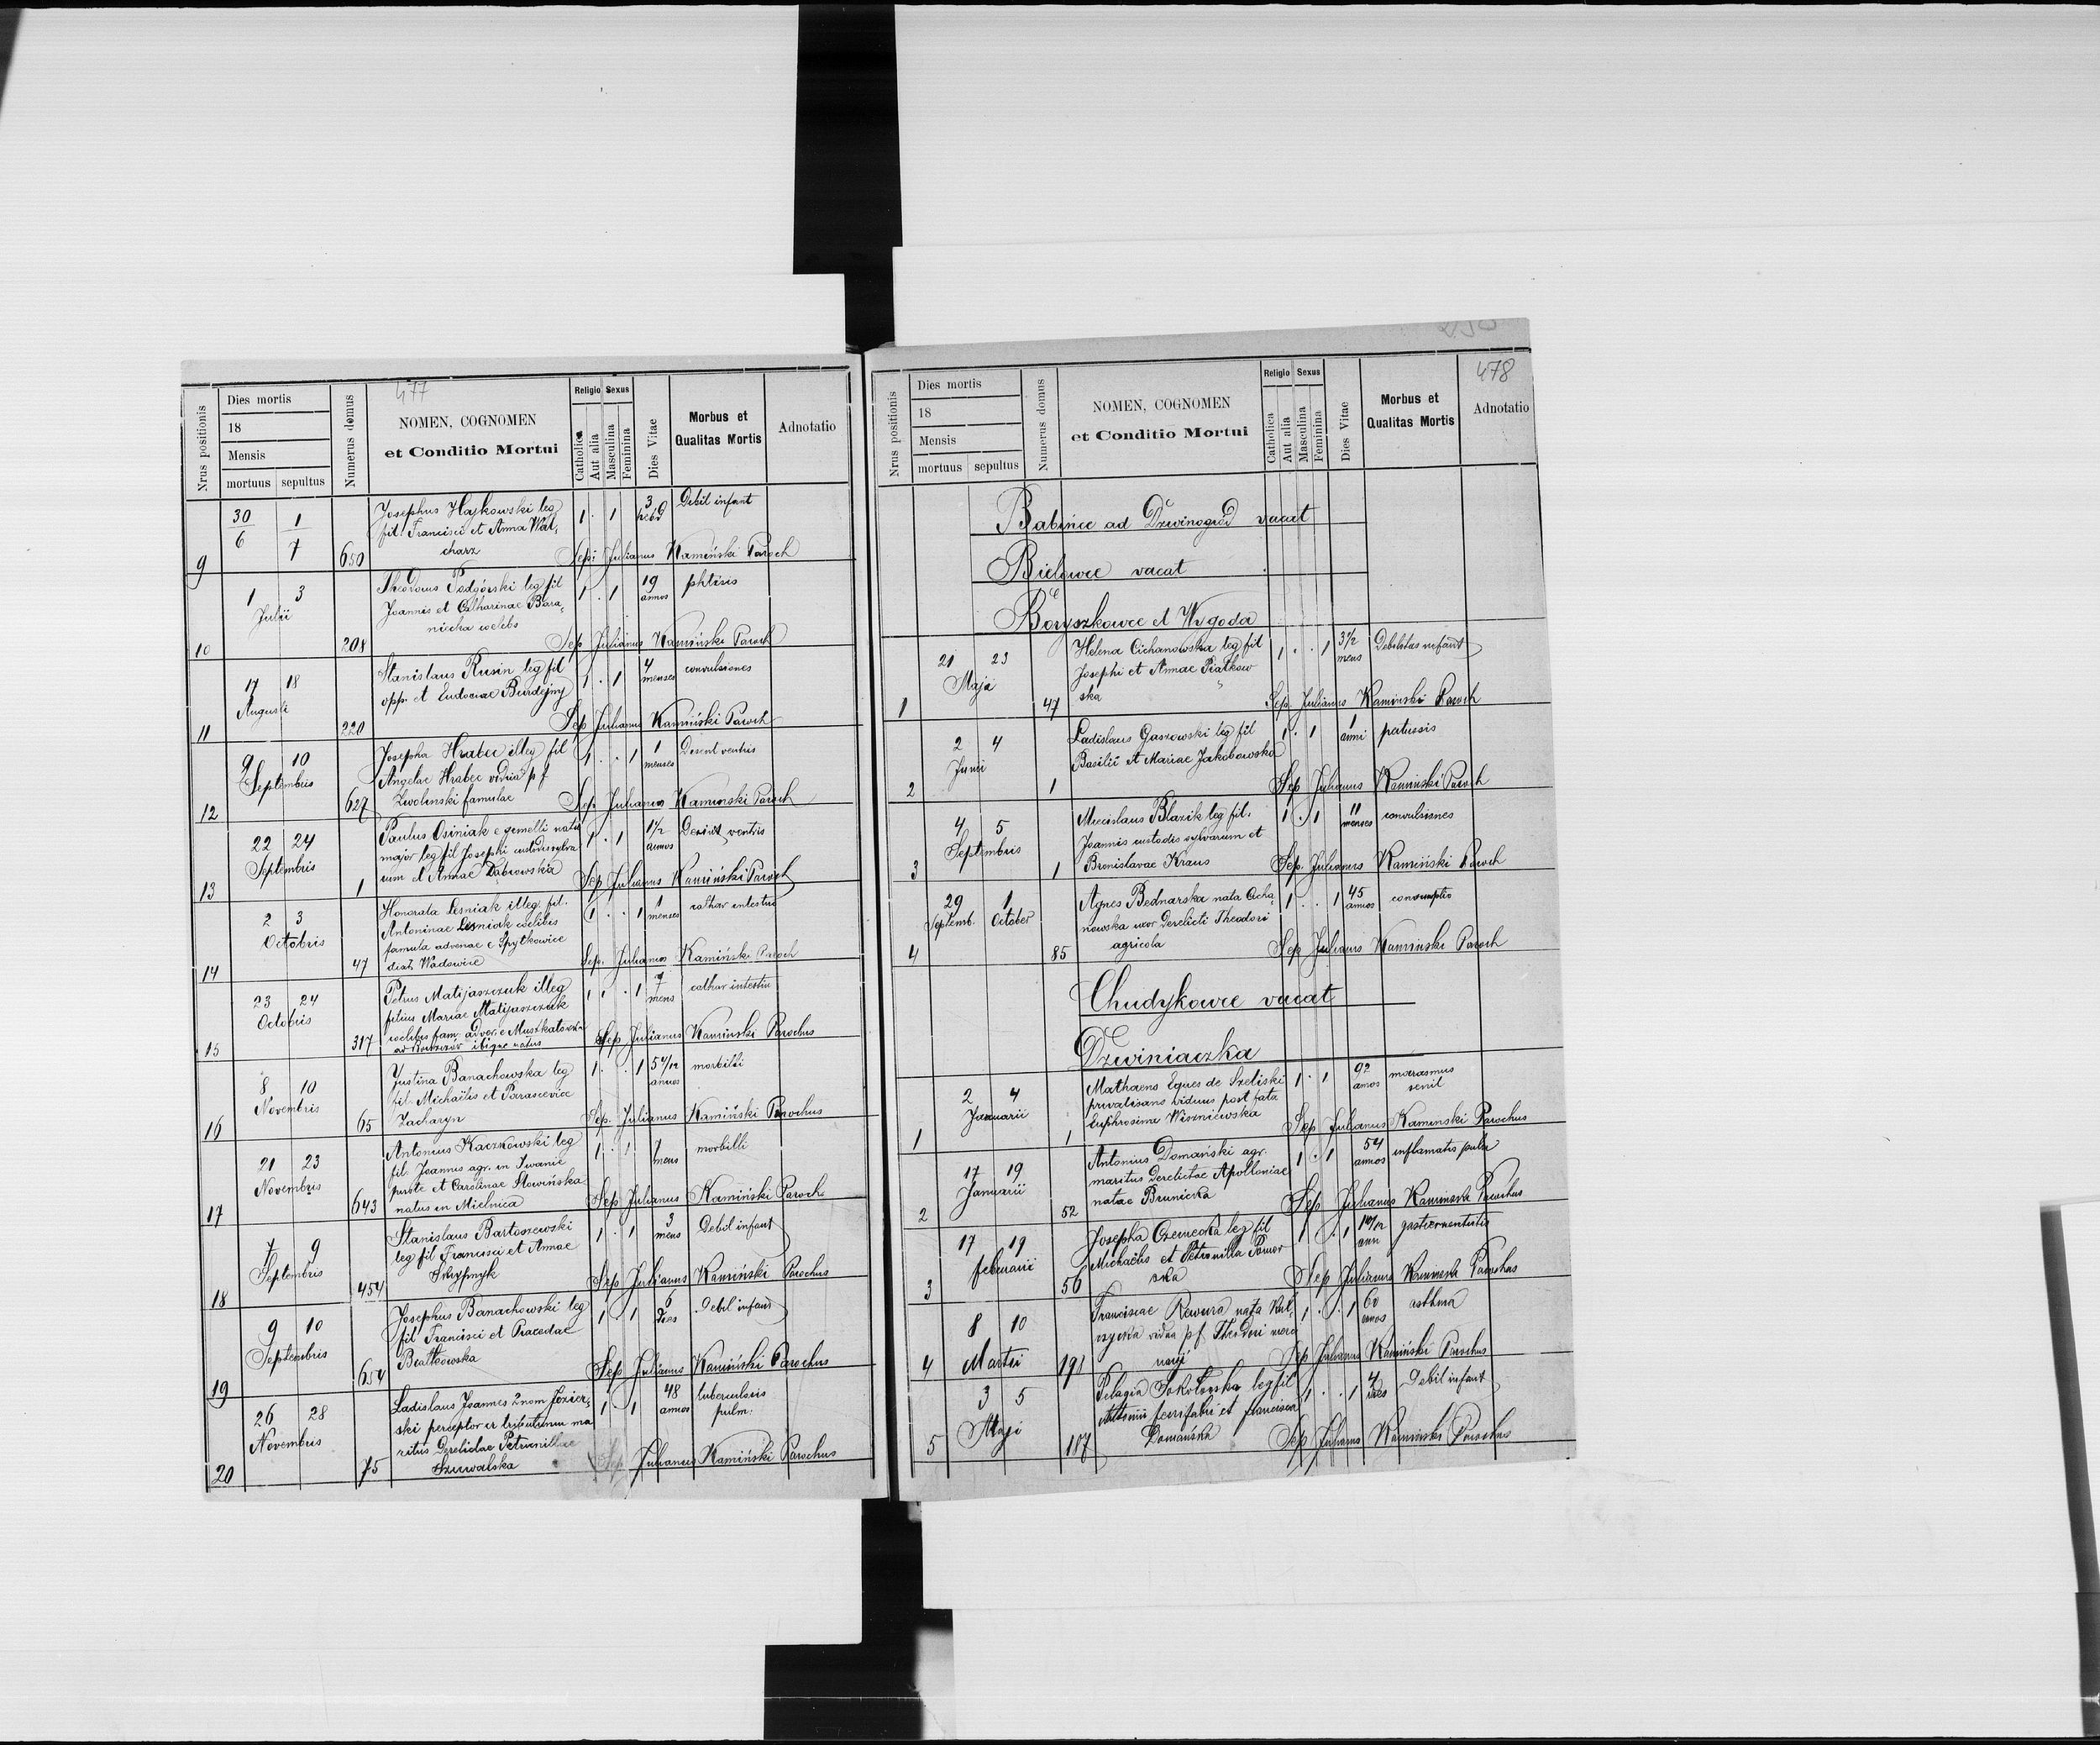 477
Nrus positionis
Dies mortis
18
Mensis
mortuus sepultus
Numerus domus
NOMEN, COGNOMEN
et Conditio Mortui
Religio Sexus
Catholica
Aut alia
Masculina
Feminina
Dies Vitae
Morbus et
Qualitas Mortis
Adnotatio
30 1 Josephus Hajkowski leg 1 . 1 3 Debil infant
6 7 fil. Francisci et Anna Wal,
9 650 charz Sep: Julianus Kamiński Paroch
1 3 Theodorus Podgórski leg fil 1 . 1 19 phtisis
Julii Joannis et Catharinae Bara, annos
10 208 niecka coelebs Sep Julianus Kamiński Paroch
17 18 Stanislaus Rusin leg fil 1 . 1 4 convulsiones
Augusti opp. et Eudociae Burdejny menses
11 220 Sep Julianus Kamiński Paroch
9 10 Josepha Hrabec illeg fil 1 . . 1 1 Desent ventris
Septembris Angelae Hrabec vidua p f menses
12 627 Zwolinski famulae Sep. Julianus Kaminski Paroch
22 24 Paulus Osiniak e gemelli natu 1 . 1 1½ ventris
Septembris major leg fil Josephi custodis sylva annos
13 1 rum et Annae Dąbrowska Sep Julianus Kamiński Paroch
2 3 Honorata Lesniak illeg. fil. 1 . . 1 1 cathar intestin
Octobris Antoninae Lesniak coelibis menses
famula advenae e Spytkowice
14 47 Wadowice Sep. Julianus Kamiński Paroch
23 24 Petrus Matijaszczuk illeg 1 . . 1 7 cathar intestin
Octobris filius Mariae Matijaszczuk mens
coelibis fam. advoc. e Muszkatowka
15 317 ad Borszczów ibique natus Sep Julianus Kaminski Parochus
8 10 Justina Banachowska leg 1 . . 1 5 4/12 morbilli
Novembris fil. Michaëlis et Parascevice annos
16 65 Zacharyn Sep. Julianus Kamiński Parochus
21 23 Antonius Kaczkowski leg 1 . 1 7 morbilli
Novembris fil. Joannis agr. in Iwanie mens
puste et Carolinae Słowińska
17 643 natus in Mielnica Sep Julianus Kamiński Paroch
7 9 Stanislaus Bartoszewski 1 . 1 3 Debil infant
Septembris leg fil Francisci et Annae mens
18 454 Skrypnyk Sep Julianus Kamiński Parochus
9 10 Josephus Banachowski leg 1 . 1 6 Debil infant
Septembris fil Francisci et Praxedae dies
19 654 Białkowska Sep Julianus Kamiński Parochus
26 28 Ladislaus Joannes 2nom Jozier, 1 1 48 tuberculosis
Novembris ski perceptor tributorum ma annos pulm.
ritus Derelictae Petronillae
20 75 Szuwalska Sep Julianus Kamiński Parochus
478
Nrus positionis
Dies mortis
18
Mensis
mortuus sepultus
Numerus domus
NOMEN, COGNOMEN
et Conditio Mortui
Religio Sexus
Catholica
Aut alia
Masculina
Feminina
Dies Vitae
Morbus et
Qualitas Mortis
Adnotatio
Babińce ad Dzwinogród vacat
Bielowce vacat
Boryszkowce et Wygoda
21 23 Helena Cichanowska leg fil 1 . . 1 3½ Debilitas infant
Maja Josephi et Annae Piatkow mens
1 47 ska Sep. Julianus Kamiński Paroch
2 4 Ladislaus Gaszowski leg fil 1 . 1 1 patussis
Junii Basilii et Mariae Jakobowska anni
2 1 Sep Julianus Kamiński Paroch
4 5 Miecislaus Blazik leg fil. 1 . 1 11 convulsiones
Septembris Joannis custodis sylvarum et menses
3 1 Bronislavae Kraus Sep. Julianus Kamiński Paroch
29 1 Agnes Bednarska nata Cicha, 1 . . 1 45 consumptio
Septemb. October nowska uxor Derelicti Theodori annos
4 85 agricola Sep Julianus Kamiński Paroch
Chudykowce vacat
Dzwiniaczka
2 4 Mathaeus Eques de Szeliski 1 . 1 92 marasmus
Januarii privatisans viduus post fata annos senil
1 1 Euphrosina Wiszniewska Sep Julianus Kaminski Parochus
17 19 Antonius Domański agr. 1 . 1 54 inflamatio pulm
Januarii maritus Derelictae Apolloniae annos
2 52 natae Brunicka Sep Julianus Kaminski Parochus
17 19 Josepha Czernecka leg fil 1 . 1 1 10/12
februarii Michaëlis et Petronilla Pomor ann
3 56 ska Sep Julianus Kaminski Parochus
8 10 Franciscae Rewura nata Kul, 1 . . 1 60 asthma
Martii czycka vidua pf Theodori annos
4 191 Sep Julianus Kamiński Parochus
3 5 Pelagia Sokołowska leg fil 1 . . 1 4 Debil infant
Maji Antonii ferrifabri et Francisca dies
5 187 Domańska Sep Julianus Kamiński Parochus